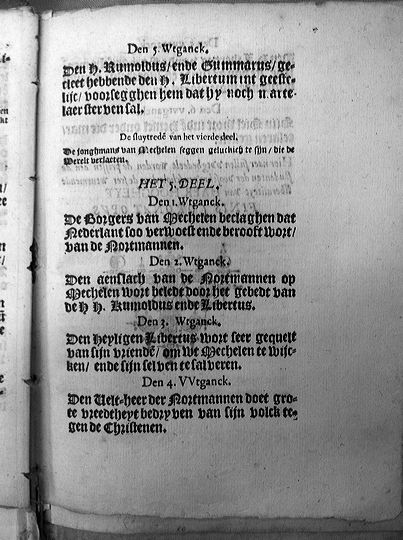 Den 5. Wtganck.
Den H. Rumoldus/ ende Gummarus/ ge-
cleet hebbende den H. Libertum int geeste-
lijc/ voorsegghen hem dat hy noch martе-
laer sterven sal.
De sluytredē van het vierde deel.
De jonghmans van Mechelen seggen geluckich te sijn/ die de
Werelt verlaeten.
HET 5. DEEL.
Den 1. Wtganck.
De Borgers van Mechelen beclaghen dat
Nederlant soo verwoest ende berooft wort/
van de Nortmannen.
Den 2. Wtganck.
Den aenslach van de Nortmannen op
Mechelen wort beledt door het gebedt van
de H H. Rumoldus ende Libertus.
Den 3. Wtganck.
Den Heyligen Libertus wort seer gequelt
van sijn vriendē/ om wt Mechelen te wijc-
ken/ ende sijn selven te salveren.
Den 4. VVtganck.
Den Velt-heer der Nortmannen doet gro-
te vreetheyt bedryven van sijn volck te-
gen de Christenen.